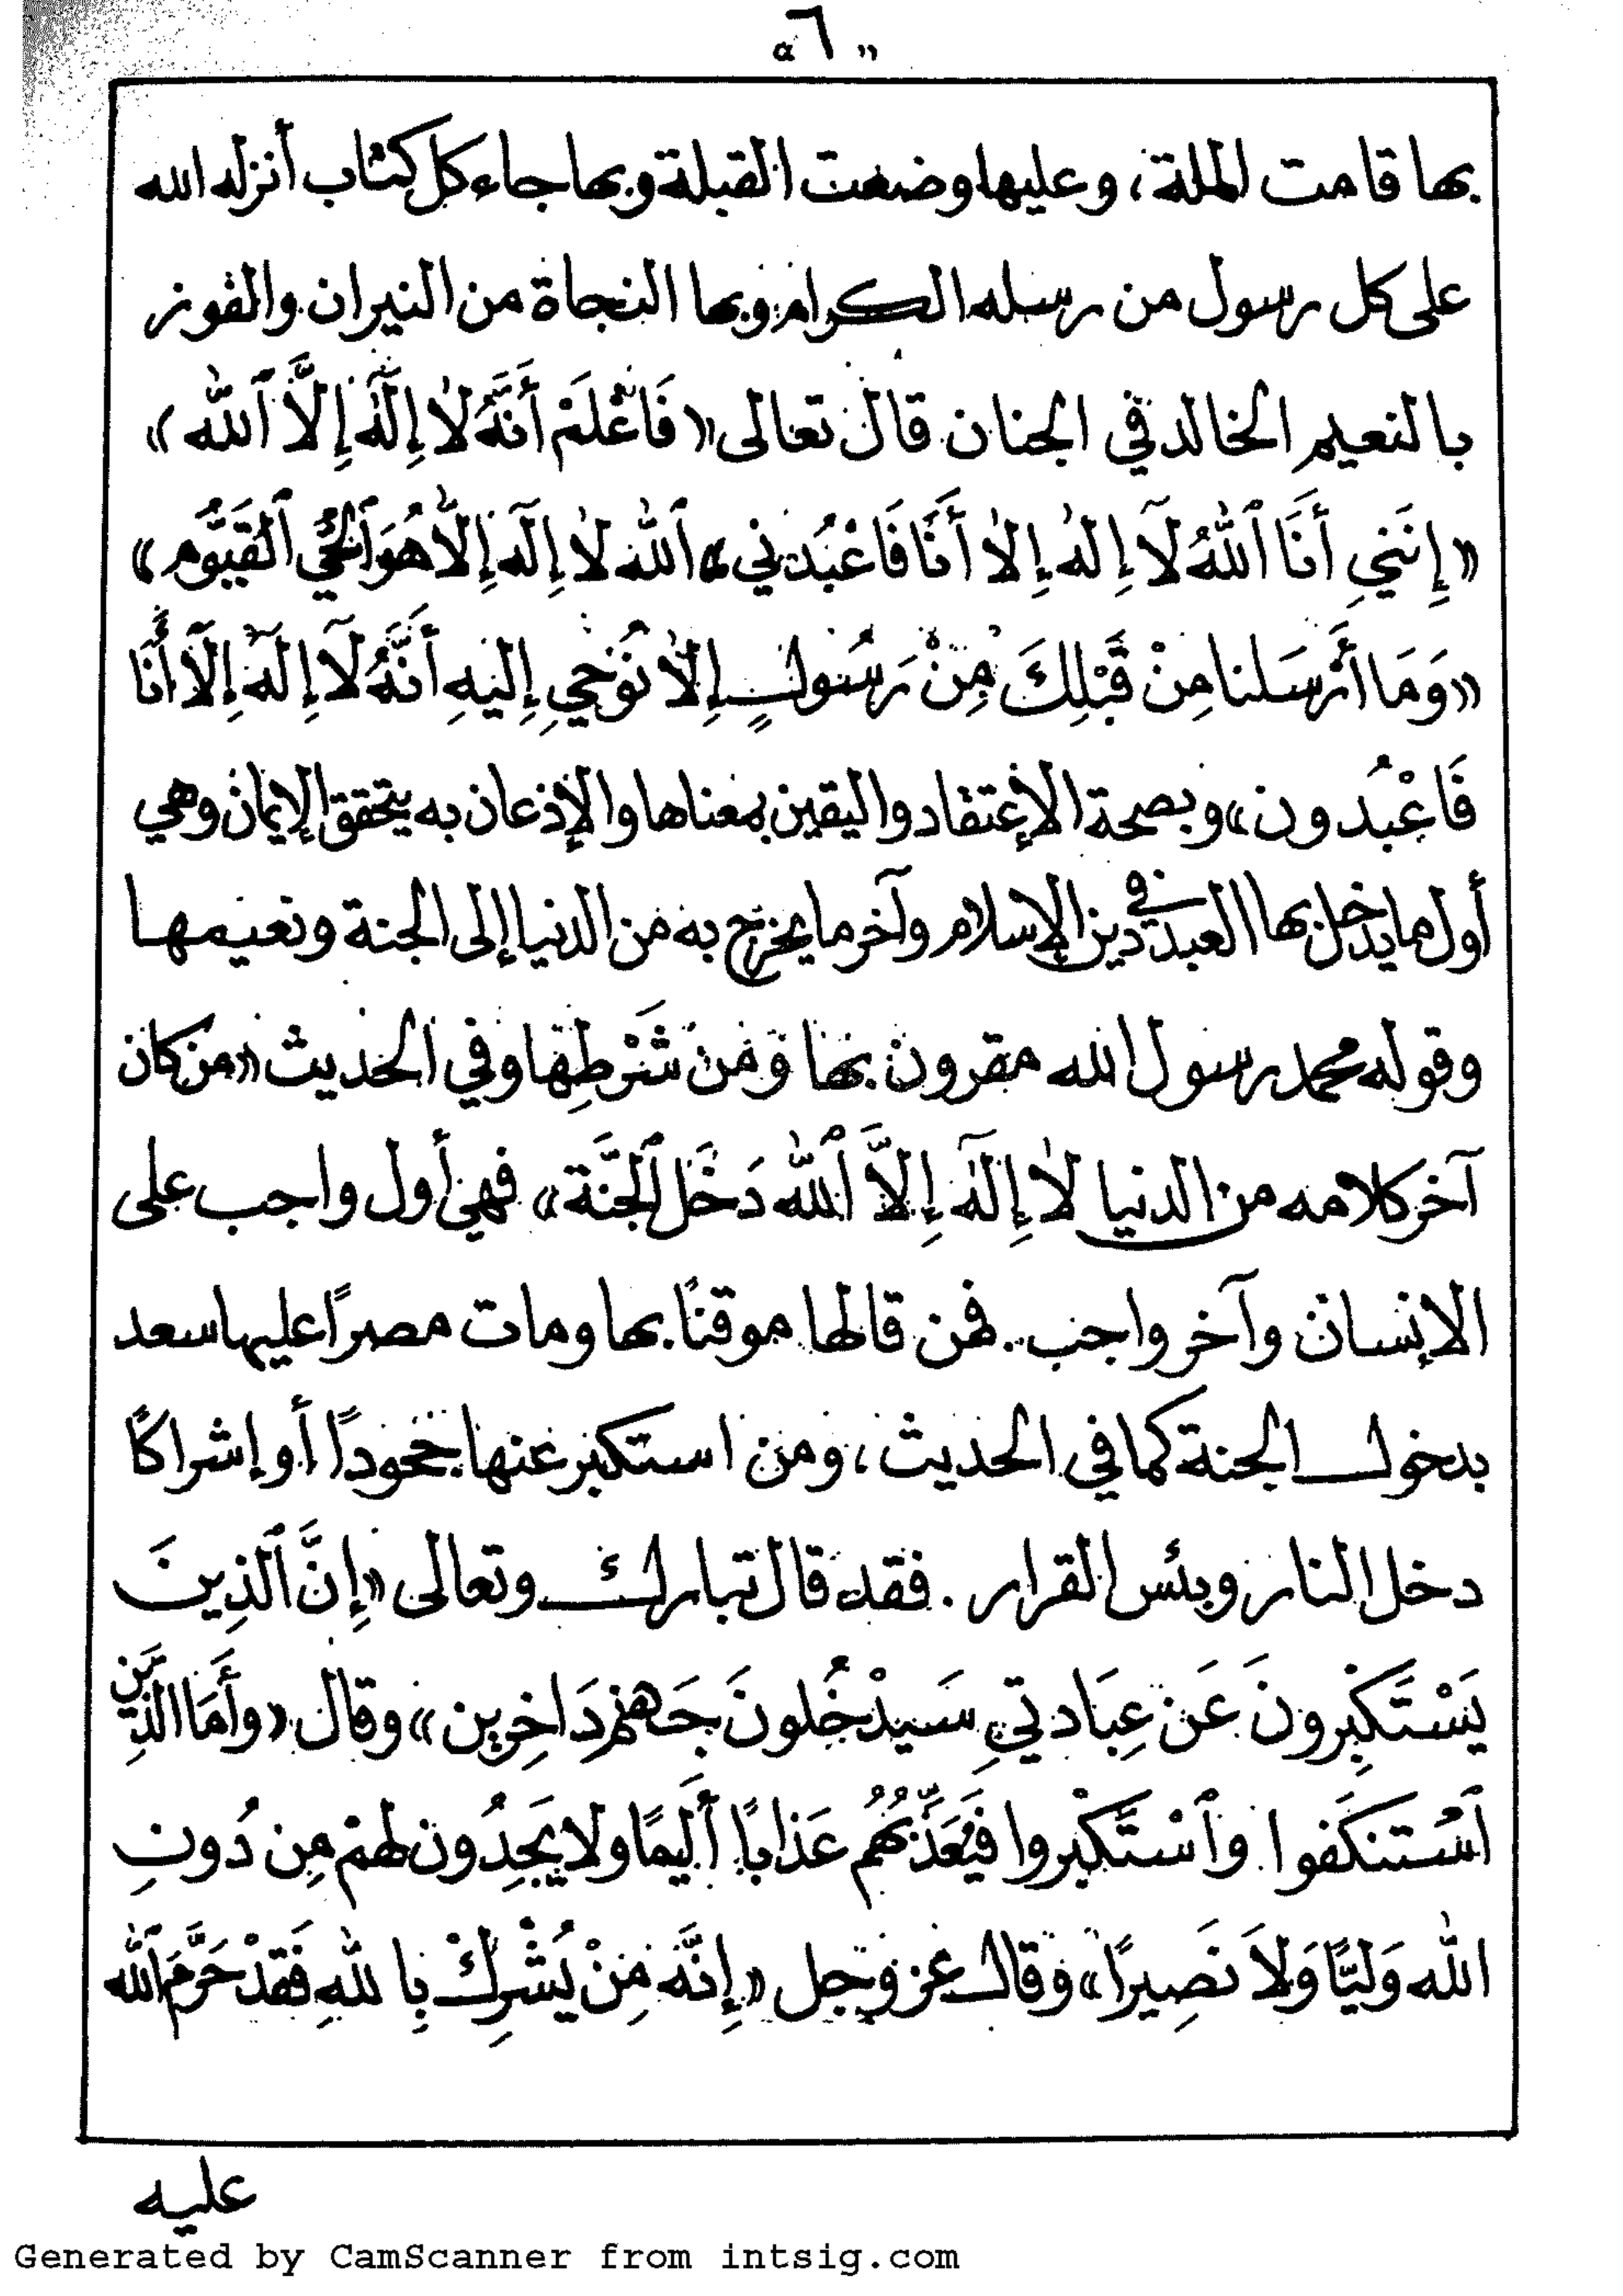 « ٦ »
بها قامت الملة، وعليها وضعت القبلة وبها جاء كل كتاب أنزله الله
على كل رسول من رسله الكرام وبها النجاة من النيران والفوز
بالنعيم الخالد في الجنان قال تعالى « فَاعْلَمْ أَنَّهُ لَا إِلَهَ إِلَّا ٱللَّه »
« إِنَنِي أَنَا ٱللَّهُ لَآ إِلَهَ إِلَا أَنَا فَاعْبُدنِي » « ٱللَّه لَا إِلَه إِلَّا هُوَ ٱلحَيُّ ٱلقَيُّوم »
« وَمَا أَرْسَلنا مِنْ قَبْلِكَ مِنْ رَسُولٍ إِلَا نُوحِي إِليهِ أَنَّهُ لَآ إِلَهَ إِلَّا أَنَا
فَاعْبُدون » وبصحة الإعتقاد واليقين بمعناها والإذعان به يتحقق الإيمان وهي
أول ما يدخل بها العبد في دين الإسلام وآخر ما يخرج به من الدنيا إلى الجنة ونعيمها
وقوله محمد رسول الله مقرون بها وَمَن شَرْطِها وفي الحديث « من كان
آخر كلامه من الدنيا لَا إِلَهَ إِلَّا ٱللَّه دَخَل ٱلجَنَّة » فهي أول واجب على
الإنسان وآخر واجب. فمن قالها موقنًا بها ومات مصرًا عليها سعد
بدخول الجنة كما في الحديث، ومن استكبر عنها جحودًا أو إشراكًا
دخل النار وبئس القرار. فقد قال تبارك وتعالى « إِنَّ ٱلذِينَ
يَسْتَكْبِرونَ عَن عِبَادتِي سَيدْخُلونَ جَهنم دَاخِرِين » وقال « وأَمَا الذِين
ٱسْتنكَفوا وٱسْتَكْبروا فَيُعَذِّبُهُمُ عَذابًا أَلِيمًا ولا يَجِدُون لهمْ مِن دُونِ
الله وَليًّا وَلاَ نَصِيرًا » وقال عز وجل « إِنَّه مِنْ يُشْرِكْ بِاللهِ فَقَدْ حَرَّمَ ٱللَّه
عليه
Generated by CamScanner from intsig.com